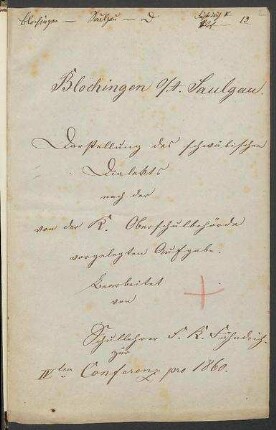 Blochingen — Saulgau — D
12
Blochingen O/A. Saulgau.
Darstellung des schwäbischen
Dialekts
nach der
von der K. Oberschulbehörde
vorgelegten Aufgabe.
Bearbeitet
von
Schullehrer F. K. Fähndrich
zur
IVten Conferenz pro 1860.